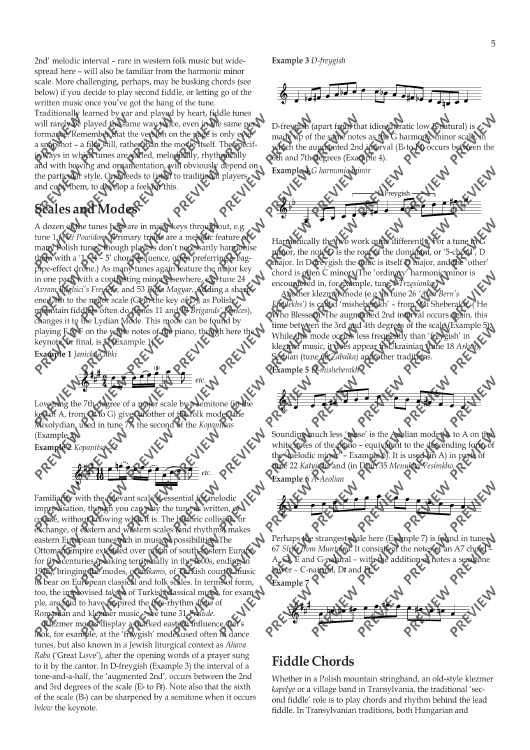 5
2nd' melodic interval – rare in western folk music but wide-
spread here – will also be familiar from the harmonic minor
scale. More challenging, perhaps, may be busking chords (see
below) if you decide to play second fiddle, or letting go of the
written music once you've got the hang of the tune.
Traditionally learned by ear and played by heart, fiddle tunes
will rarely be played the same way twice, even in the same per-
formance. Remember that the version on the page is only ever
a snapshot – a film still, rather than the movie itself. The
ways in which tunes are varied, melodically, rhythmically
and with bowing and ornamentation, will obviously depend on
the particular style. One needs to listen to traditional players,
and copy them, to develop a feel for this.
Scales and Modes
A dozen of the tunes here are in major keys throughout, e.g.
tune 1. Primary triads are a melodic feature of
many Polish tunes, though players don't necessarily harmonise
them with a chord sequence, often preferring a bag-
pipe-effect drone.) As many tunes again feature the major key
in one part, with a contrasting minor elsewhere, e.g. tune 24
Avram and 53 Magyar. Adding a sharp-
ened 4th to the major scale (G♯ in the key of D, as Polish
mountain fiddlers often do, tunes 11 and Brigands' Dances),
changes it to the Lydian Mode. This mode can be found by
playing F to F on the white notes of the piano, though here the
keynote, or final, is (Example 1).
Example 1 Janicka
etc.
Lowering the 7th degree of a major scale by a semitone (in the
key of A, from G♯ to G) gives another of the folk modes, the
Mixolydian, used in tune 7, the second of the Kopanitsas
(Example 2).
Example 2 Kopanitsa
etc.
Familiarity with the relevant scale is essential for melodic
improvisation, though you can play the tune as written, of
course, without knowing what it is. The historic collision, or
exchange, of eastern and western scales and rhythms makes
eastern European tunes rich in musical possibilities. The
Ottoman empire extended over much of south-eastern Europe
for five centuries, peaking territorially in the 1600s, ending in
bringing the modes, or makams, of Turkish courtly music
to bear on European classical and folk scales. In terms of form,
too, the improvised taksim of Turkish classical music, for exam-
ple, are said to have inspired the free-rhythm doina of
Romanian and klezmer music – see tune 31,
Klezmer modes display a marked eastern influence. Let's
look, for example, at the 'freygish' mode used often in dance
tunes, but also known in a Jewish liturgical context as Ahava
Raba ('Great Love'), after the opening words of a prayer sung
to it by the cantor. In D-freygish (Example 3) the interval of a
tone-and-a-half, the 'augmented 2nd', occurs between the 2nd
and 3rd degrees of the scale (E♭ to F♯). Note also that the sixth
of the scale (B♭) can be sharpened by a semitone when it occurs
below the keynote.
Example 3 D-freygish
D-freygish (apart from that idiomatic low B natural) is
made up of the same notes as the G harmonic minor scale, in
which the augmented 2nd interval (E♭ to F♯) occurs between the
6th and 7th degrees (Example 4).
Example 4 G harmonic minor
Freygish
Harmonically the two work quite differently. For a tune in G
minor, the note D is the root of the dominant, or '5-chord', D
major. In D-freygish the tonic is itself D major, and the 'other'
chord is often C minor. The 'ordinary' harmonic minor is
encountered in, for example, tune
Another klezmer mode (e.g. in tune 26 Bern's
) is called 'misheberakh' – from 'Mi Sheberakh' ('He
Who Blesses'). The augmented 2nd interval occurs again, this
time between the 3rd and 4th degrees of the scale (Example 5).
While this mode occurs less frequently than 'freygish' in
klezmer music, it does appear in Ukrainian (tune 18
), Serbian (tune ) and other traditions.
Example 5 D-misheberakh
Sounding much less 'tense' is the Aeolian mode (A to A on the
white notes of the piano – equivalent to the descending form of
the 'melodic minor' – Example 6). It is used (in A) in parts of
tune 22 and (in D) in 35
Example 6 A-Aeolian
Perhaps the strangest scale here (Example 7) is found in tune
67 from It consists of the notes of an A7 chord –
A, C♯, E and G-natural – with the addition of notes a semitone
lower – C-natural, D♯ and
Example 7
Fiddle Chords
Whether in a Polish mountain stringband, an old-style klezmer
kapelye or a village band in Transylvania, the traditional 'sec-
ond fiddle' role is to play chords and rhythm behind the lead
fiddle. In Transylvanian traditions, both Hungarian and
PREVIEW